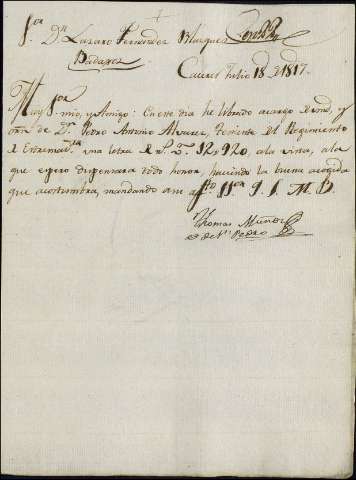 S.or D.n Lazaro Fernandez Blazquez
Badajoz
Caceres Julio 18 de 1817.
Muy S.or mio, y Amigo: En este dia he librado acargo de vmd, y
orn de D.n Pedro Antonio Alvarez, Teniente del Regimiento
de Estremad.ra una letra de 12,920, ala vista, ala
que espero dispensara todo honor, haciendo la buena acogida
que acostumbra, mandando a su af.to
Thomas Muñoz
de S.n Pedro